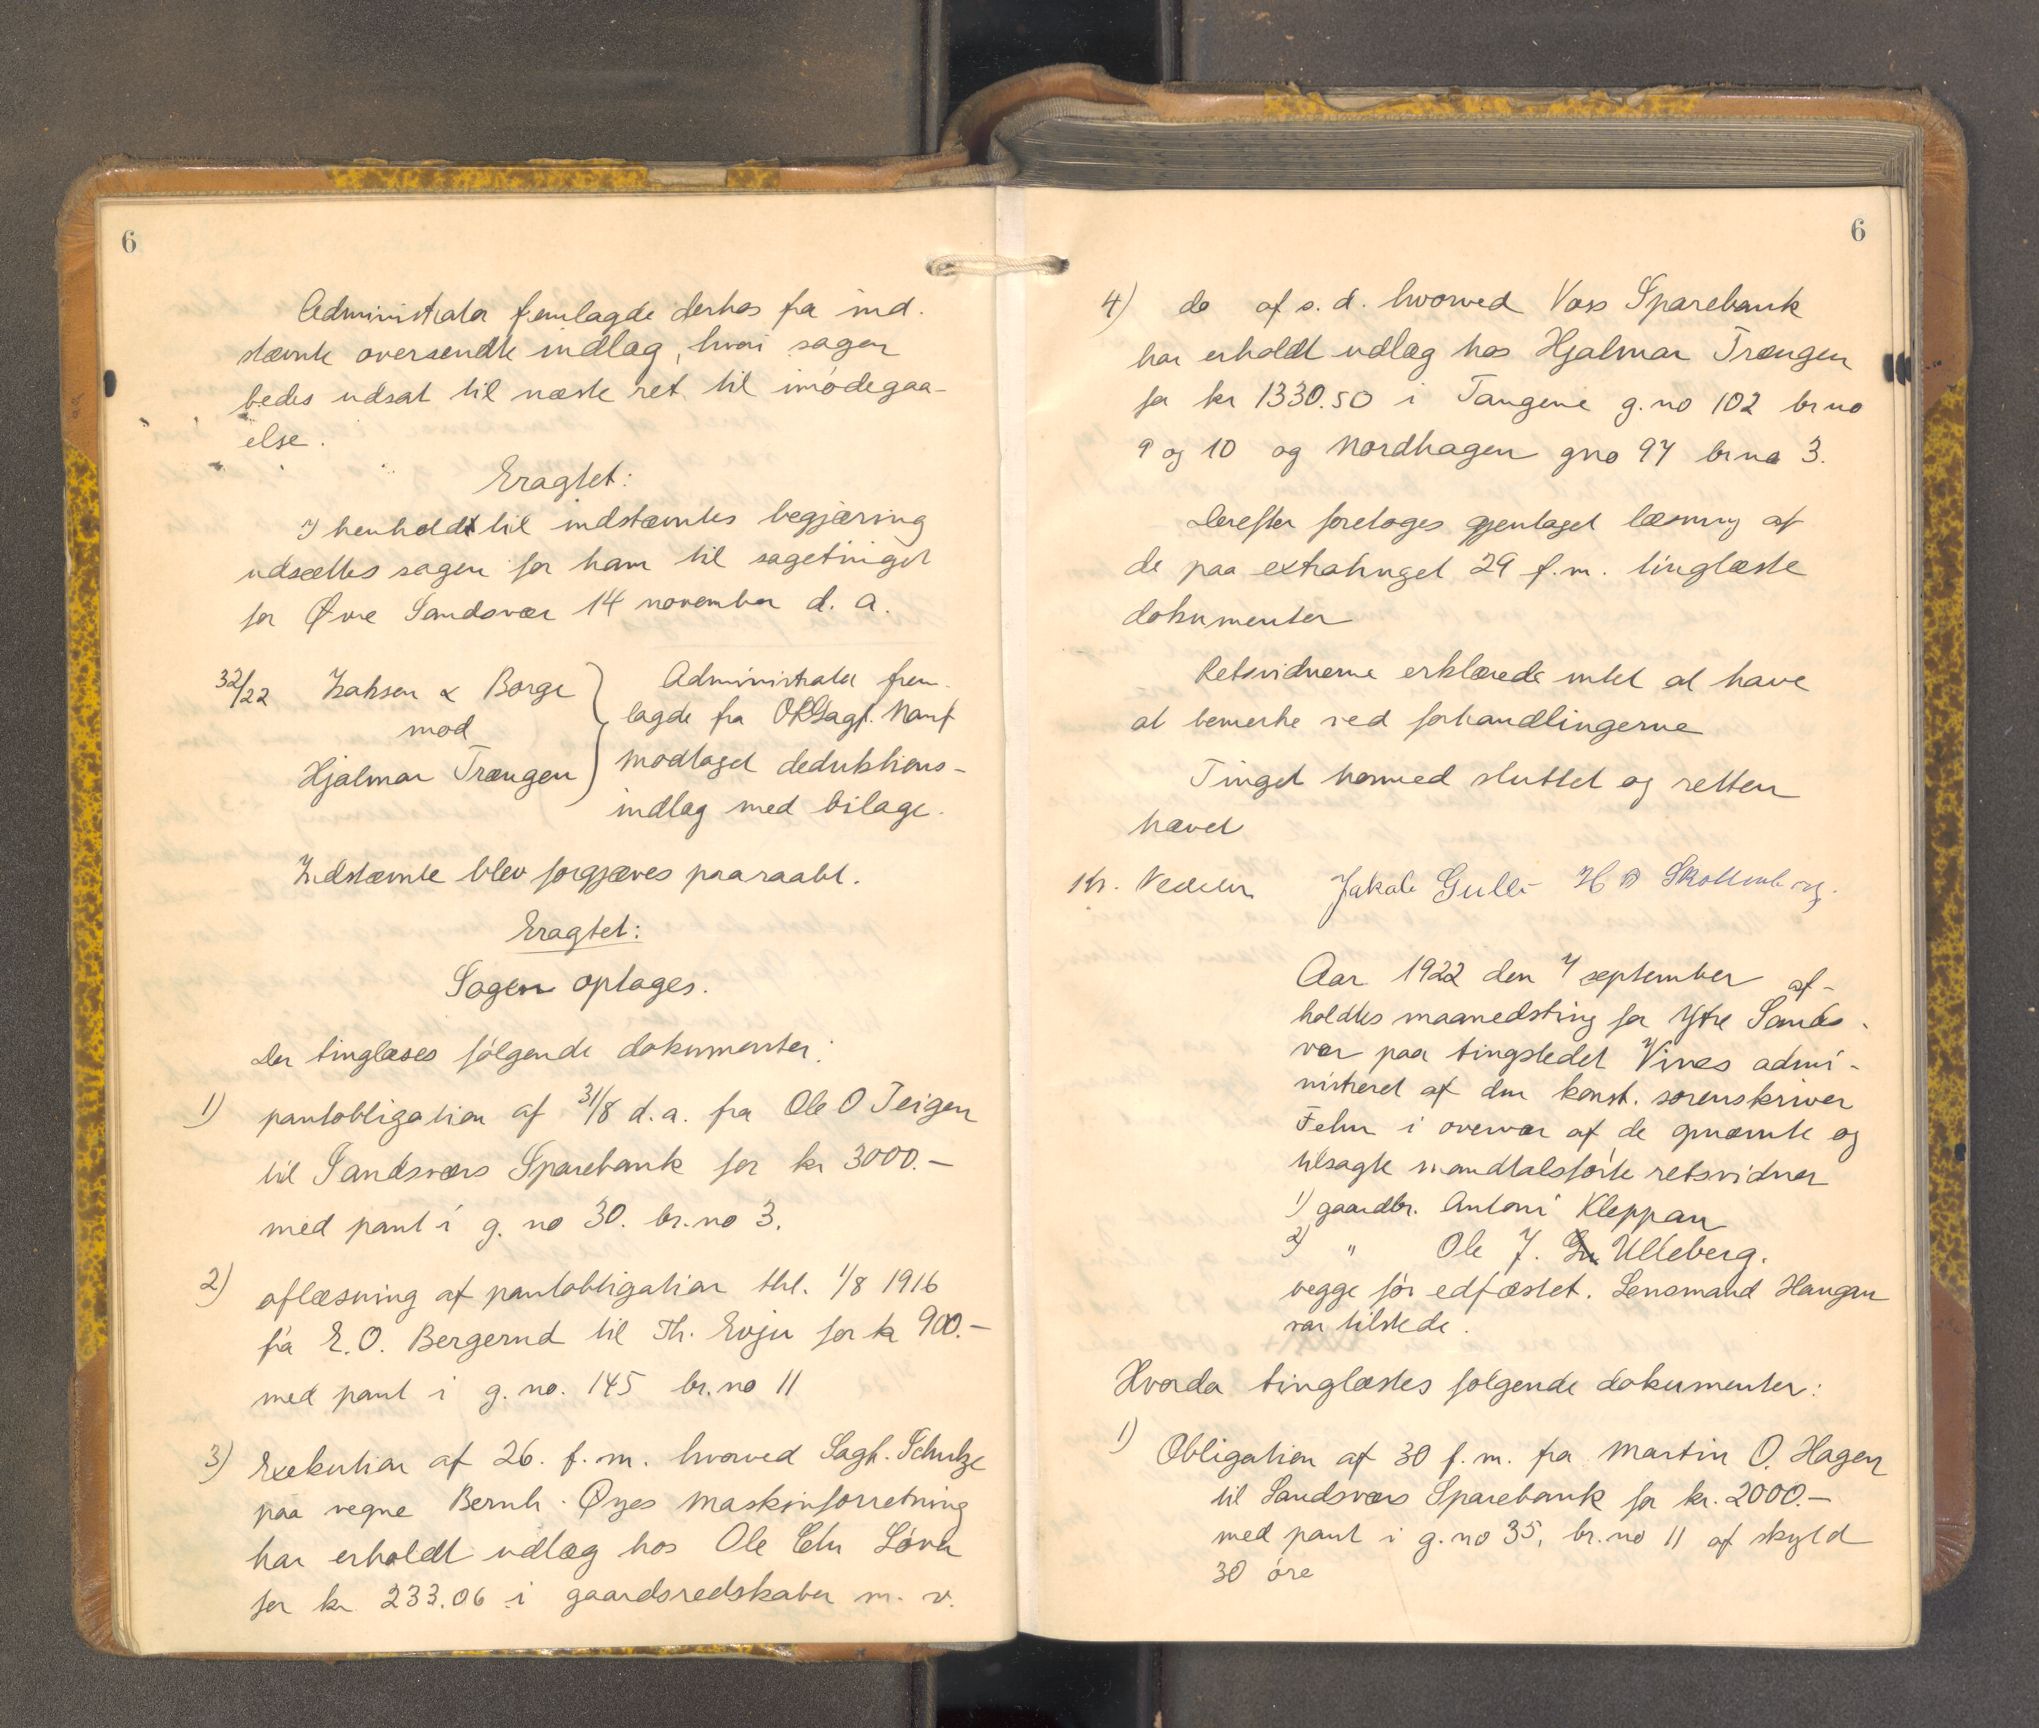 6
Administrator fremlagde derhos fra ind-
stævnte oversendte indlæg, hvori sagen
bedes udsat til næste ret til imødegaa-
else.
Eragtet:
I henhold til indstævntes begjæring
udsættes sagen for ham til sagetinget
for Øvre Sandsvær 14 november d. a.
32/22 Isaksen & Borge
mod
Hjalmar Trængen
Administrator frem-
lagde fra ORSagf. Nanf
modtaget deduktions-
indlæg med bilage.
Indstævnte blev forgjæves paaraabt.
Eragtet:
Sagen optages.
Der tinglæses følgende dokumenter:
1) pantobligation af 31/8 d.a. fra Ole O Teigen
til Sandsværs Sparebank for kr 3000.–
med pant i g. no 30. br. no 3.
2) aflæsning af pantobligation thl. 1/8 1916
fra E. O. Bergerud til Th. Evju for kr 900.–
med pant i g. no. 145 br. no 11
3) Exekution af 26. f. m. hvorved Sagf. Schulze
paa vegne Bernh. Øyes Maskinforretning
har erholdt udlæg hos Ole Chr Løver
for kr 233.06 i gaardsredskaber m. v.
6
4) do af s. d. hvorved Voss Sparebank
har erholdt udlæg hos Hjalmar Trængen
for kr 1330.50 i Tangene g. no 102 br no
9 og 10 og Nordhagen gno 97 br no 3.
Derefter foretoges gjentaget læsning af
de paa extratinget 29 f. m. tinglæste
dokumenter
Retsvidnerne erklærede intet at have
at bemerke ved forhandlingerne
Tinget hermed sluttet og retten
hævet
Chr. Vedeler Jakob Gulli H B Skollenborg.
Aar 1922 den 7 september af-
holdtes maanedsting for Ytre Sands-
vær paa tingstedet Vinæs admi-
nistreret af den konst. sorenskriver
Fehn i overvær af de opnævnte og
tilsagte mandtalsførte retsvidner
1) gaardbr. Antoni Kleppan
2) " Ole J. Ulleberg.
begge før edfæstet. Lensmand Haugan
var tilstede.
Hvorda tinglæstes følgende dokumenter:
1) Obligation af 30 f. m. fra Martin O. Hagen
til Sandsværs Sparebank for kr. 2000.–
med pant i g. no 35, br. no 11 af skyld
30 øre